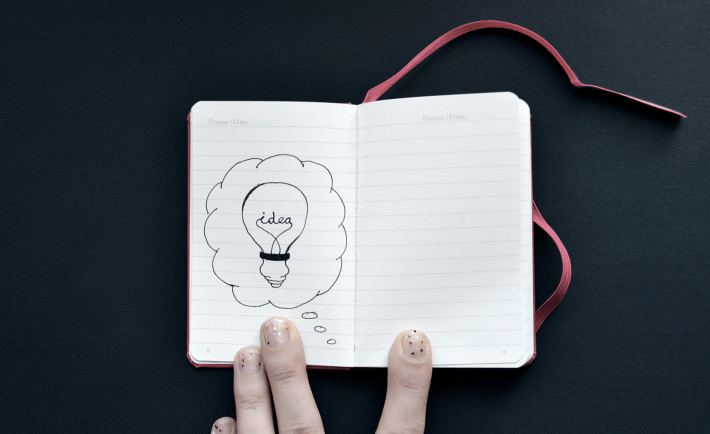 Datum / Date:
idea
Datum / Date: